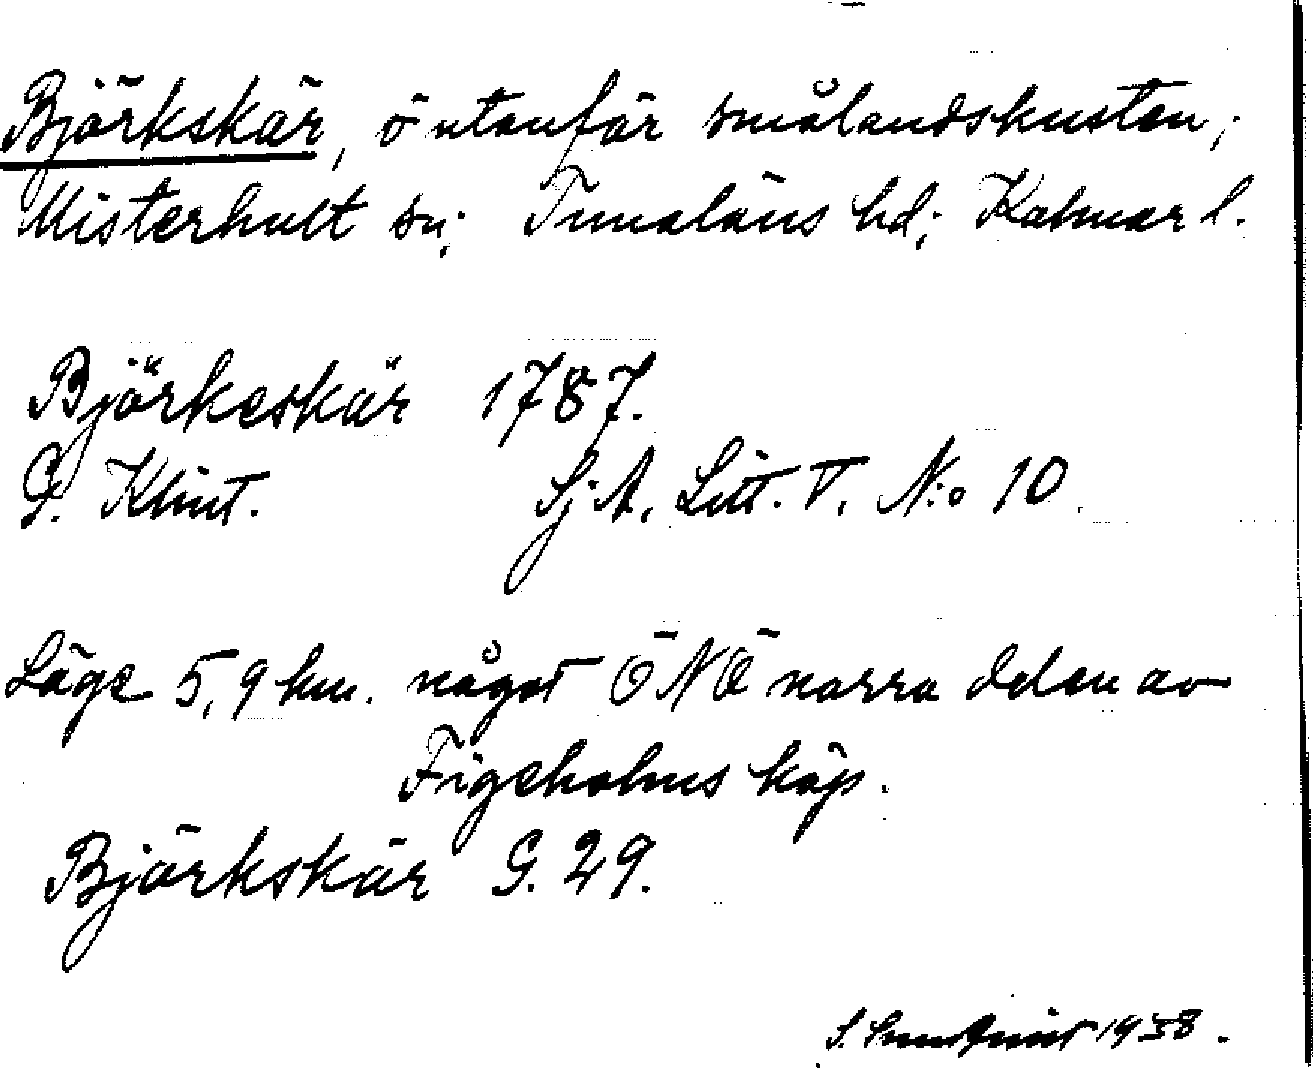 Björkskär, ö utanför smålandskusten;
Misterhult sn; Tunaläns hd; Kalmar l.
Björkeskär 1787.
G. Klint. Sj.A. Litt. T. N:o 10
Läge 5,9 km. något ÖNÖ norra delen av
Figeholms köp.
Björkskär G. 29.
S. 1938.